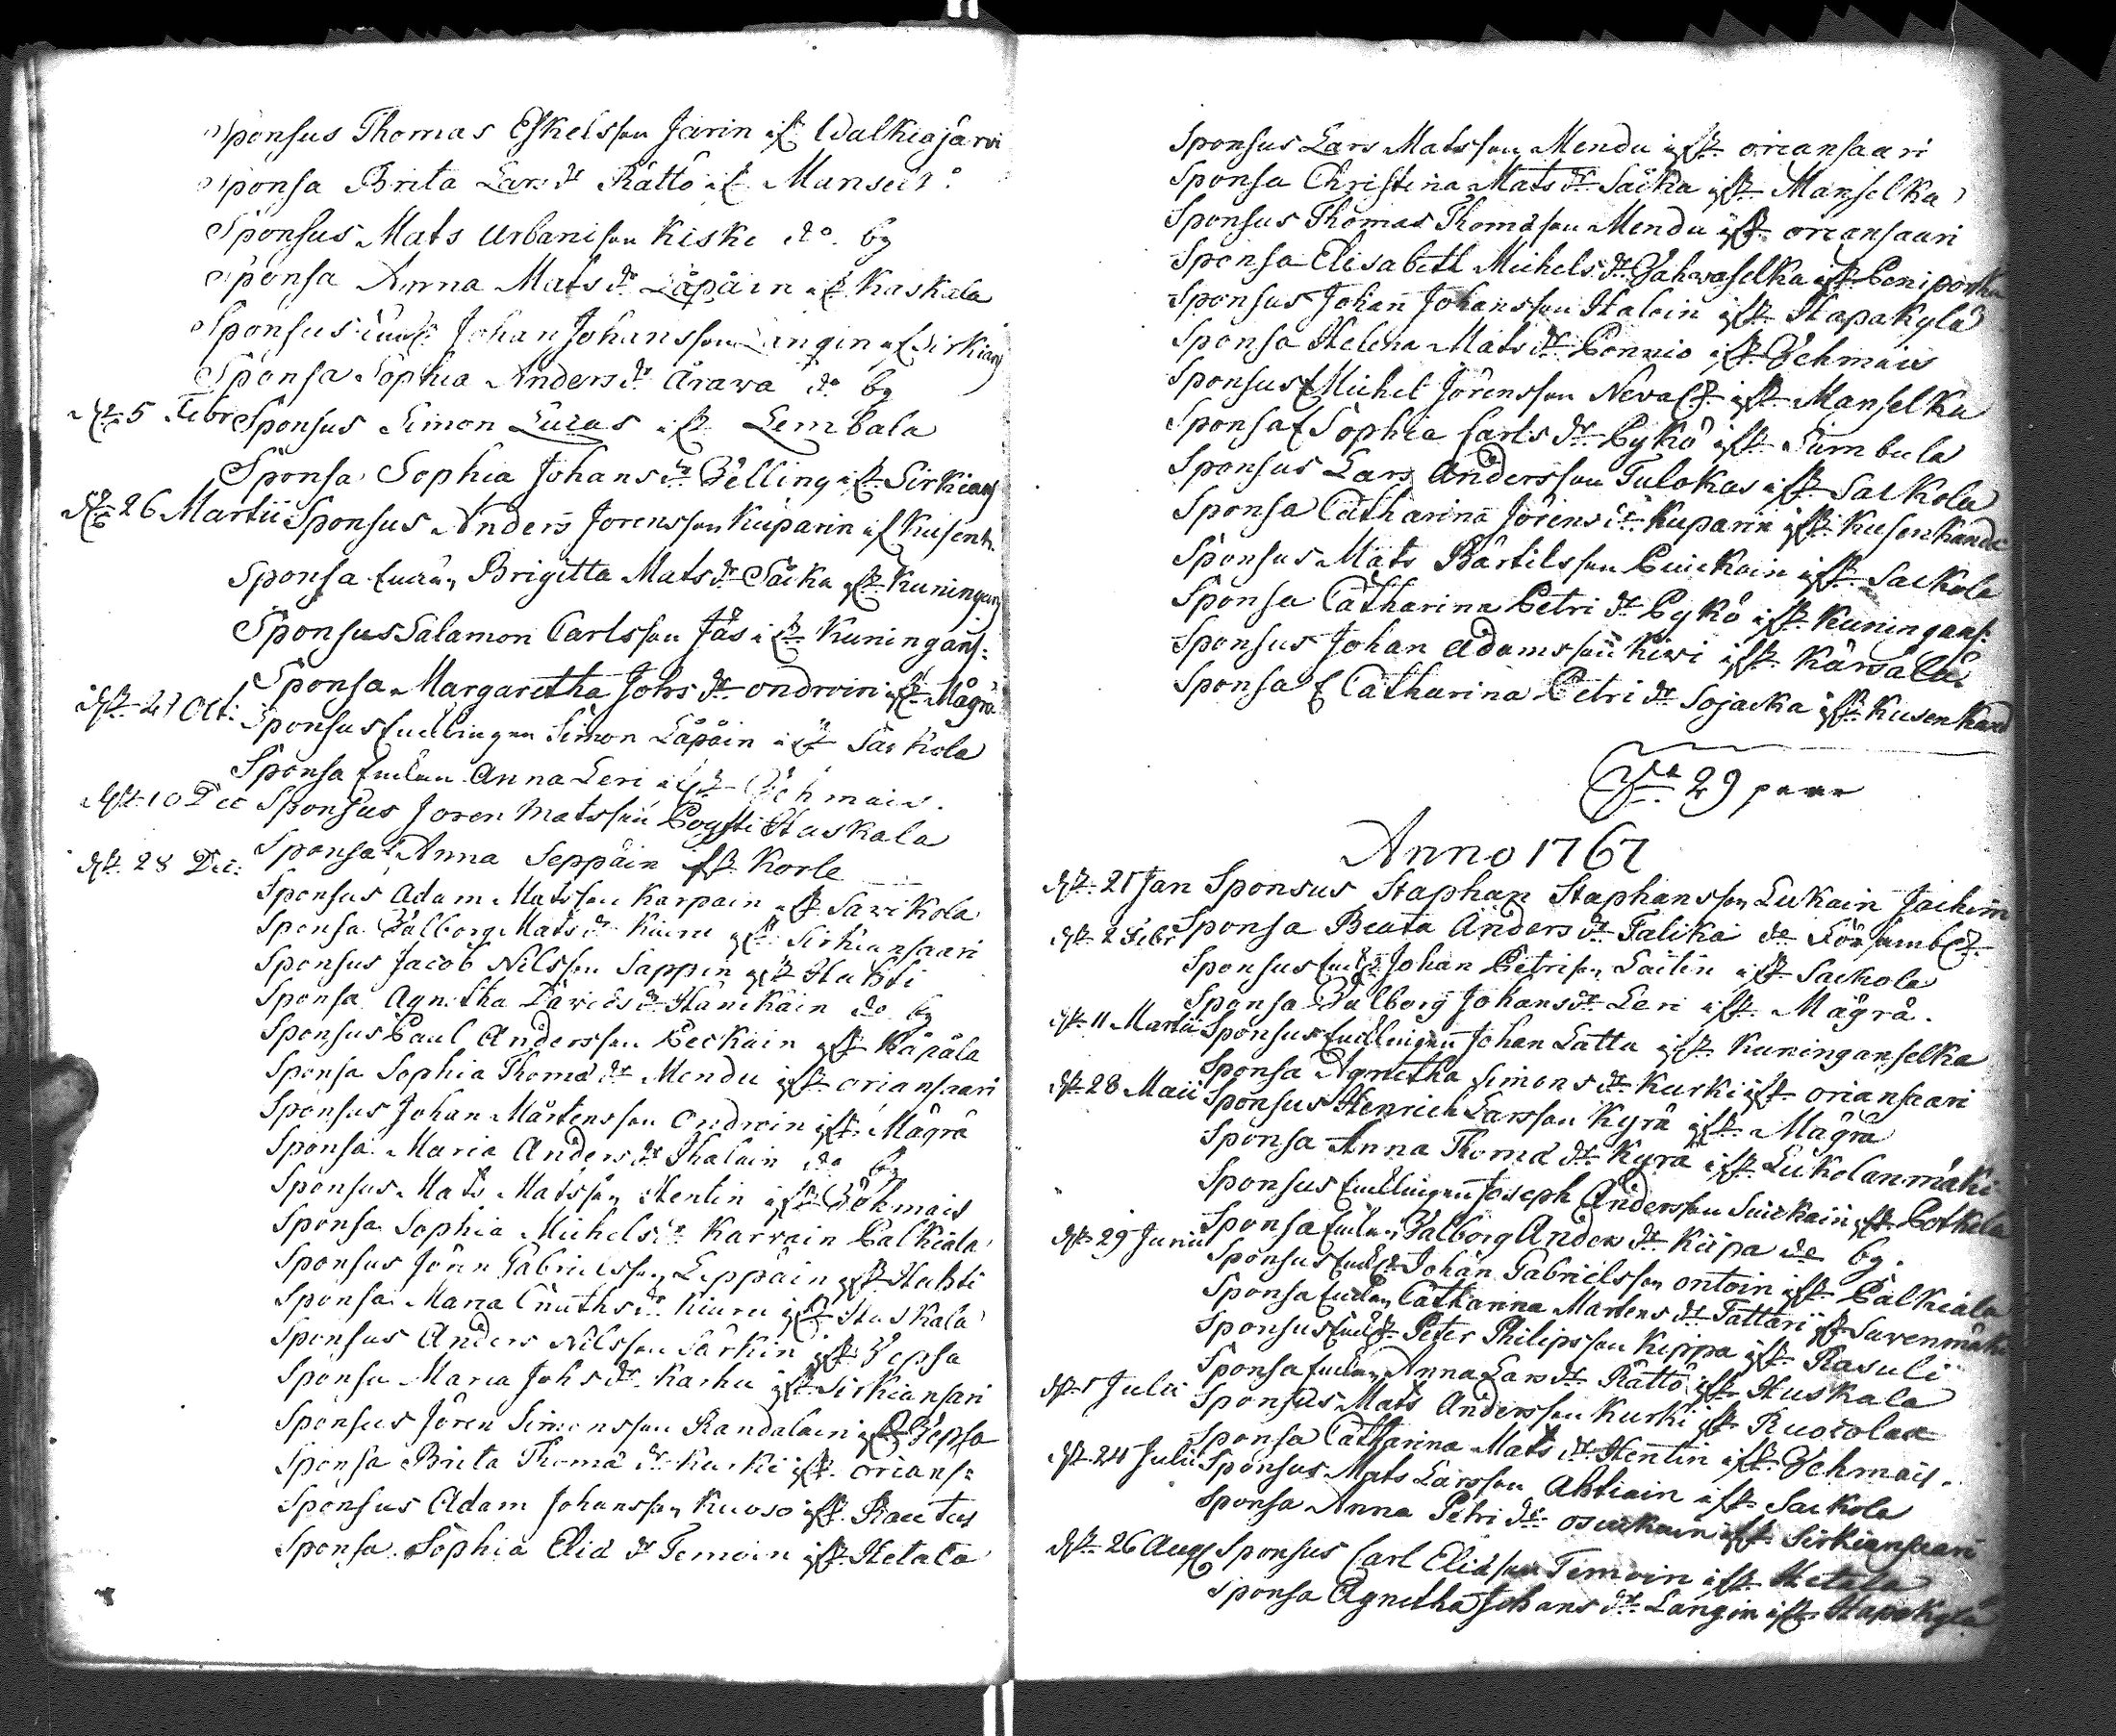 Sponsus Thomas Eskelsson Järin ifr. Walkiajärvi
Sponsa Brita Lars dr. Rättö ifr. Mansel:
Sponsus Mats Urbanisson Kiski do. by
Sponsa Anna Mats dr. Läpäin ifr. Kaskala
Sponsus Johan Johansson Längin af Sirkians
Sponsa Sophia Anders dr. Arava do by
d. 5 Febr Sponsus Simon Lucas ifr. Lembala
Sponsa Sophia Johans dr. Zilling ifr. Sirkians
d. 26 Martii Sponsus Anders Jörensson Kuparin af Kusenh.
Sponsa Enckan Brigitta Mats dr. Säika ifr. Kuningans
Sponsus Salamon Carlsson Jäs ifr. Kuningans:
Sponsa Margaretha Johs dr. Ondroin ifr. Mägrä
d. Oct: Sponsus Encklingen Simon Läpäin ifr. Sackola
Sponsa Enckan Anna Leri ifr. Zehmais.
dr. 10 Dec Sponsus Jören Matsson Poysti Huskala
Sponsa Anna Seppäin ifr. Korle
dr. 28 Dec: Sponsus Adam Matsson Karpain ifr. Savikola
Sponsa Walborg Mats dr. Kiuru ifr. Sirkiansaari
Sponsus Jacob Nilsson Sappin ifr. Hahti
Sponsa Agnetha Davids dr. Hänikäin do by
Sponsus Paul Andersson Peckain ifr. Käpälä
Sponsa Sophia Thoma dr. Mendu ifr. oriansaari
Sponsus Johan Mårtensson Ondroin ifr. Mägrä
Sponsa Maria Anders dr. Ihalain do by
Sponsus Mats Matsson Hentin ifr. Zehmais
Sponsa Sophia Michels dr. Karvain Palkiala
Sponsus Jören Gabrielsson Leppäin ifr. Hahti
Sponsa Maria Cnuths dr. Kiuru ifr. Huskala
Sponsus Anders Nilsson Särkin ifr. Zepsa
Sponsa Maria Johs dr. Karhu ifr. Sirkiansari
Sponsus Jören Simonsson Randalain ifr. Zepsa
Sponsa Brita Thoma dr. Kurki ifr. orians:
Sponsus Adam Johansson Kuoso ifr. Rautus
Sponsa Sophia Elia dr. Temoin ifr. Hetala
Sponsus Lars Matsson Mendu ifr. oriansaari
Sponsa Christina Mats dr. Säika ifr. Manselka
Sponsus Thomas Thomasson Mendu ifr. oriansaari
Sponsa Elisabeth Michels dr. Zahvaselka ifr. Peniporku
Sponsus Johan Johansson Haloin ifr. Hapakylä
Sponsa Helena Mats dr. Ponnio ifr. Zehmais
Sponsus Michel Jörensson Neva ifr. Manselka
Sponsa Sophia Carls dr. Pykö ifr. Sumbula
Sponsus Lars Andersson Tulokas ifr. Sackola
Sponsa Catharina Jörens dr. Kuparin ifr. Kusenhande
Sponsus Mats Bärtilsson Puickoin ifr. Sackola
Sponsa Catharina Petri dr. Pykö ifr. Kuningans:
Sponsus Johan Adamsson Kiwi ifr. Kärsälä
Sponsa Catharina Petri dr. Sojacka ifr. Kusenhand
29 paar
Anno 1767
dr. 21 Jan Sponsus Staphan Staphansson Lukain Jackim
Sponsa Beata Anders dr. Talika
dr. 2 Febr Sponsus Johan Petrisson Laitin ifr. Sackola
Sponsa Walborg Johans dr. Leri ifr. Mägrä.
dr. 11 Martii Sponsus Encklingen Johan Latta ifr. Kuninganselka
Sponsa Agnetha Simons dr. Kurki ifr. oriansaari
dr. 28 Maii Sponsus Henrich Larsson Kyrä ifr. Mägrä
Sponsa Anna Thoma dr. Kyrä ifr. Lukolanmäki
Sponsus Encklingen Joseph Andersson Suickain ifr. Potkela
Sponsa Enckan Walborg Anders dr. Kiipa do by.
dr. 29 Junii Sponsus Johan Gabrielsson ontoin ifr. Palkiala
Sponsa Enckan Catharina Martens dr. Tattari ifr. Savenmäki
Sponsus Peter Philipsson Kippa ifr. Rasuli
Sponsa Enckan Anna Lars dr. Rättö ifr. Huskala
dr. 1 Julii Sponsus Mats Andersson Kurki ifr. Ruocolax
Sponsa Catharina Mats dr. Hentin ifr. Zehmais.
dr. 24 Julii Sponsus Mats Larsson Ahtiain ifr. Sackola
Sponsa Anna Petri dr. osuckain ifr. Sirkiansaari
dr. 26 Aug Sponsus Carl Eliasson Temoin ifr. Hetala
Sponsa Agnetha Johans dr. Langin ifr. Hapakylä